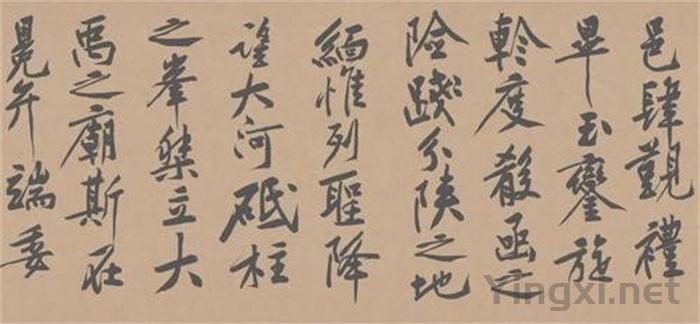 邑肆覲禮
畢玉鑾旋
軫度殽函之
險踐分陝之地
緬惟列聖降
望大河砥柱
之峯桀立大
禹之廟斯在
冕弁端委
Yingxi.net